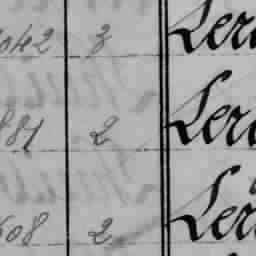 042 3 Ler
881 2 Ler
608 2 Ler